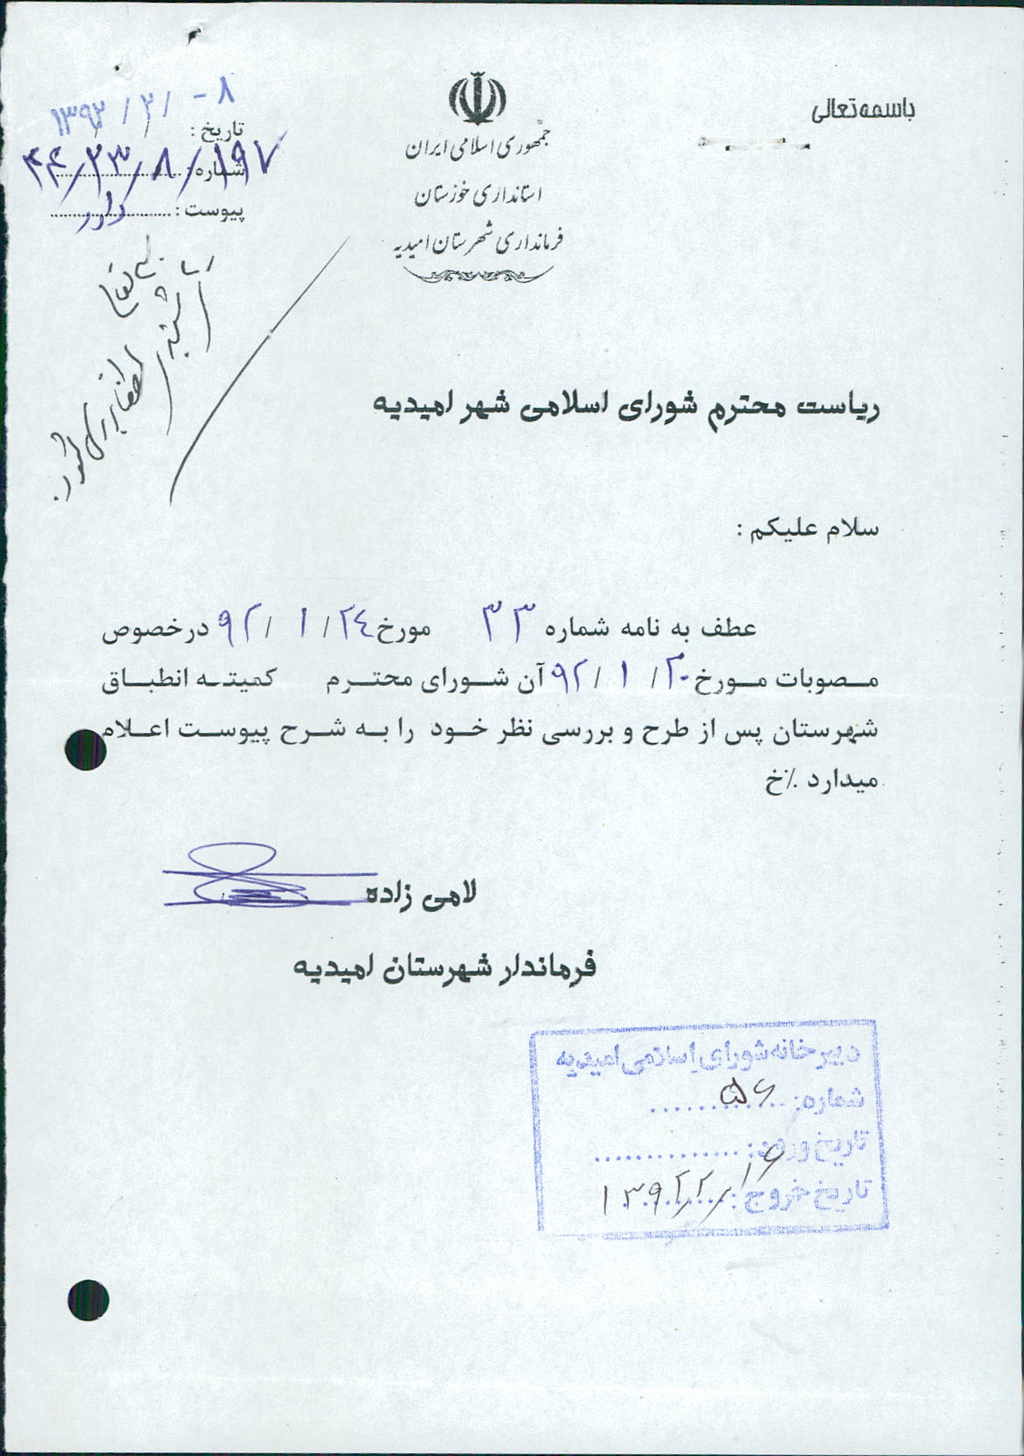 باسمه تعالی
جمهوری اسلامی ایران
استانداری خوزستان
فرمانداری شهرستان امیدیه
تاریخ : ۱۳۹۲/۲/-۸
شماره: ۴۴/۲۳/۸/۱۹۷
پیوست : دارد
ریاست محترم شورای اسلامی شهر امیدیه
سلام علیکم :
عطف به نامه شماره ۳۳ مورخ ۹۲/۱/۲۴ درخصوص
مصوبات مورخ ۹۲/۱/۲۰ آن شورای محترم کمیته انطباق
شهرستان پس از طرح و بررسی نظر خود را به شرح پیوست اعلام
میدارد ./خ
لامی زاده
فرماندار شهرستان امیدیه
دبیرخانه شورای اسلامی امیدیه
شماره: ۵۶
تاریخ ورود:
تاریخ خروج: ۱۳۹۲/۲/۱۶